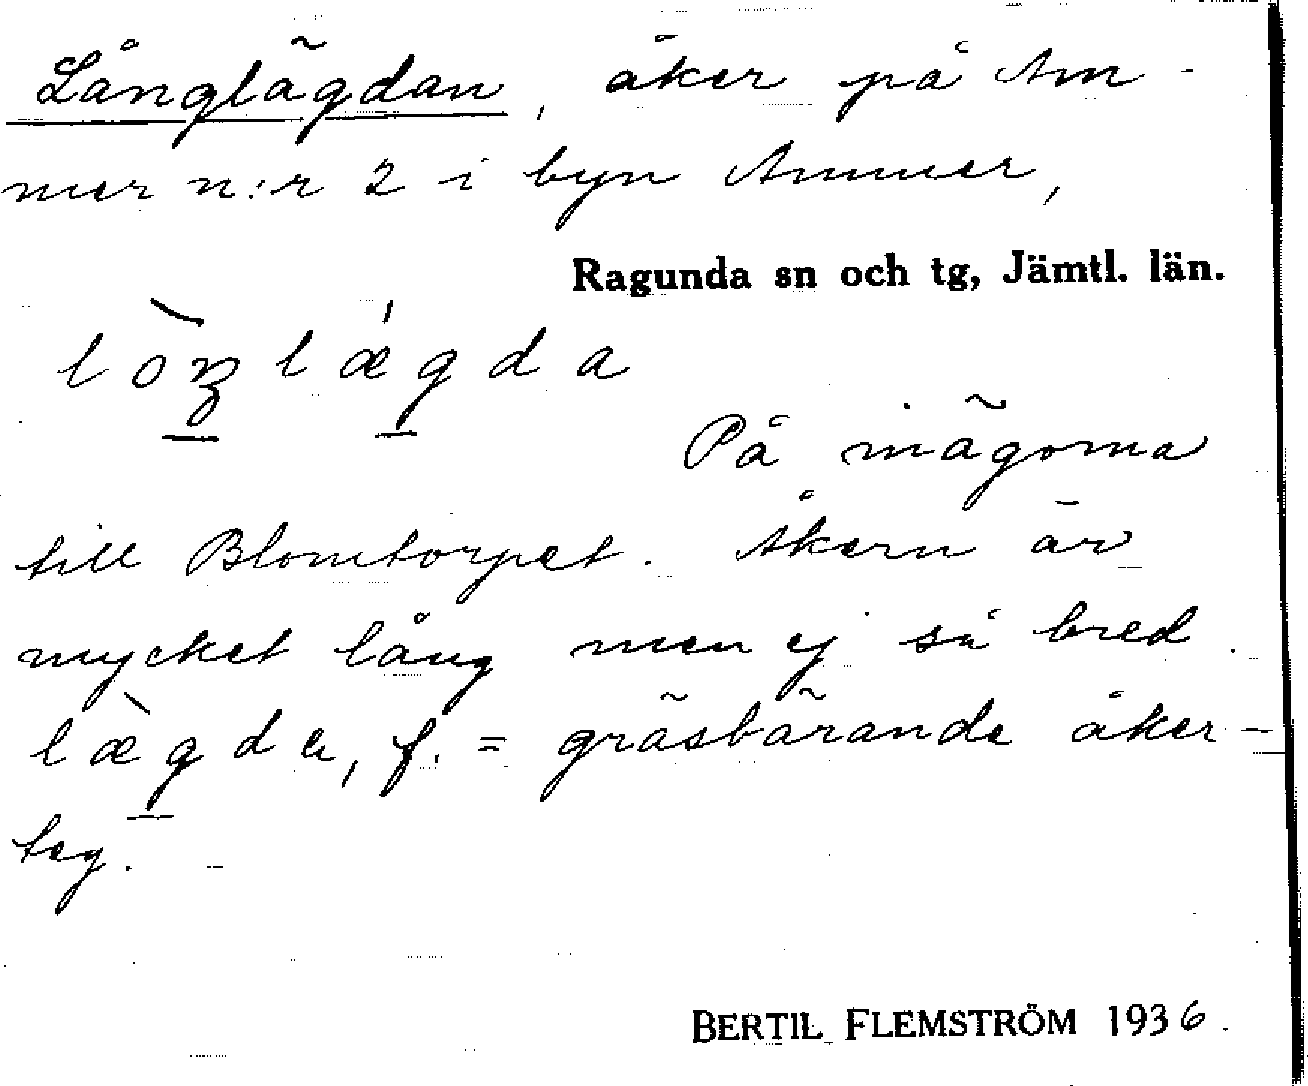 Långlägdan, åker på Am-
mer n:r 2 i byn Ammer,
Ragunda sn och tg, Jämtl. län.
lòŋlǽgda
På inägorna
till Blomtorpet. Åkern är
mycket lång men ej så bred.
læ̀gda, f. = gräsbärande åker-
teg.
BERTIL FLEMSTRÖM 1936.